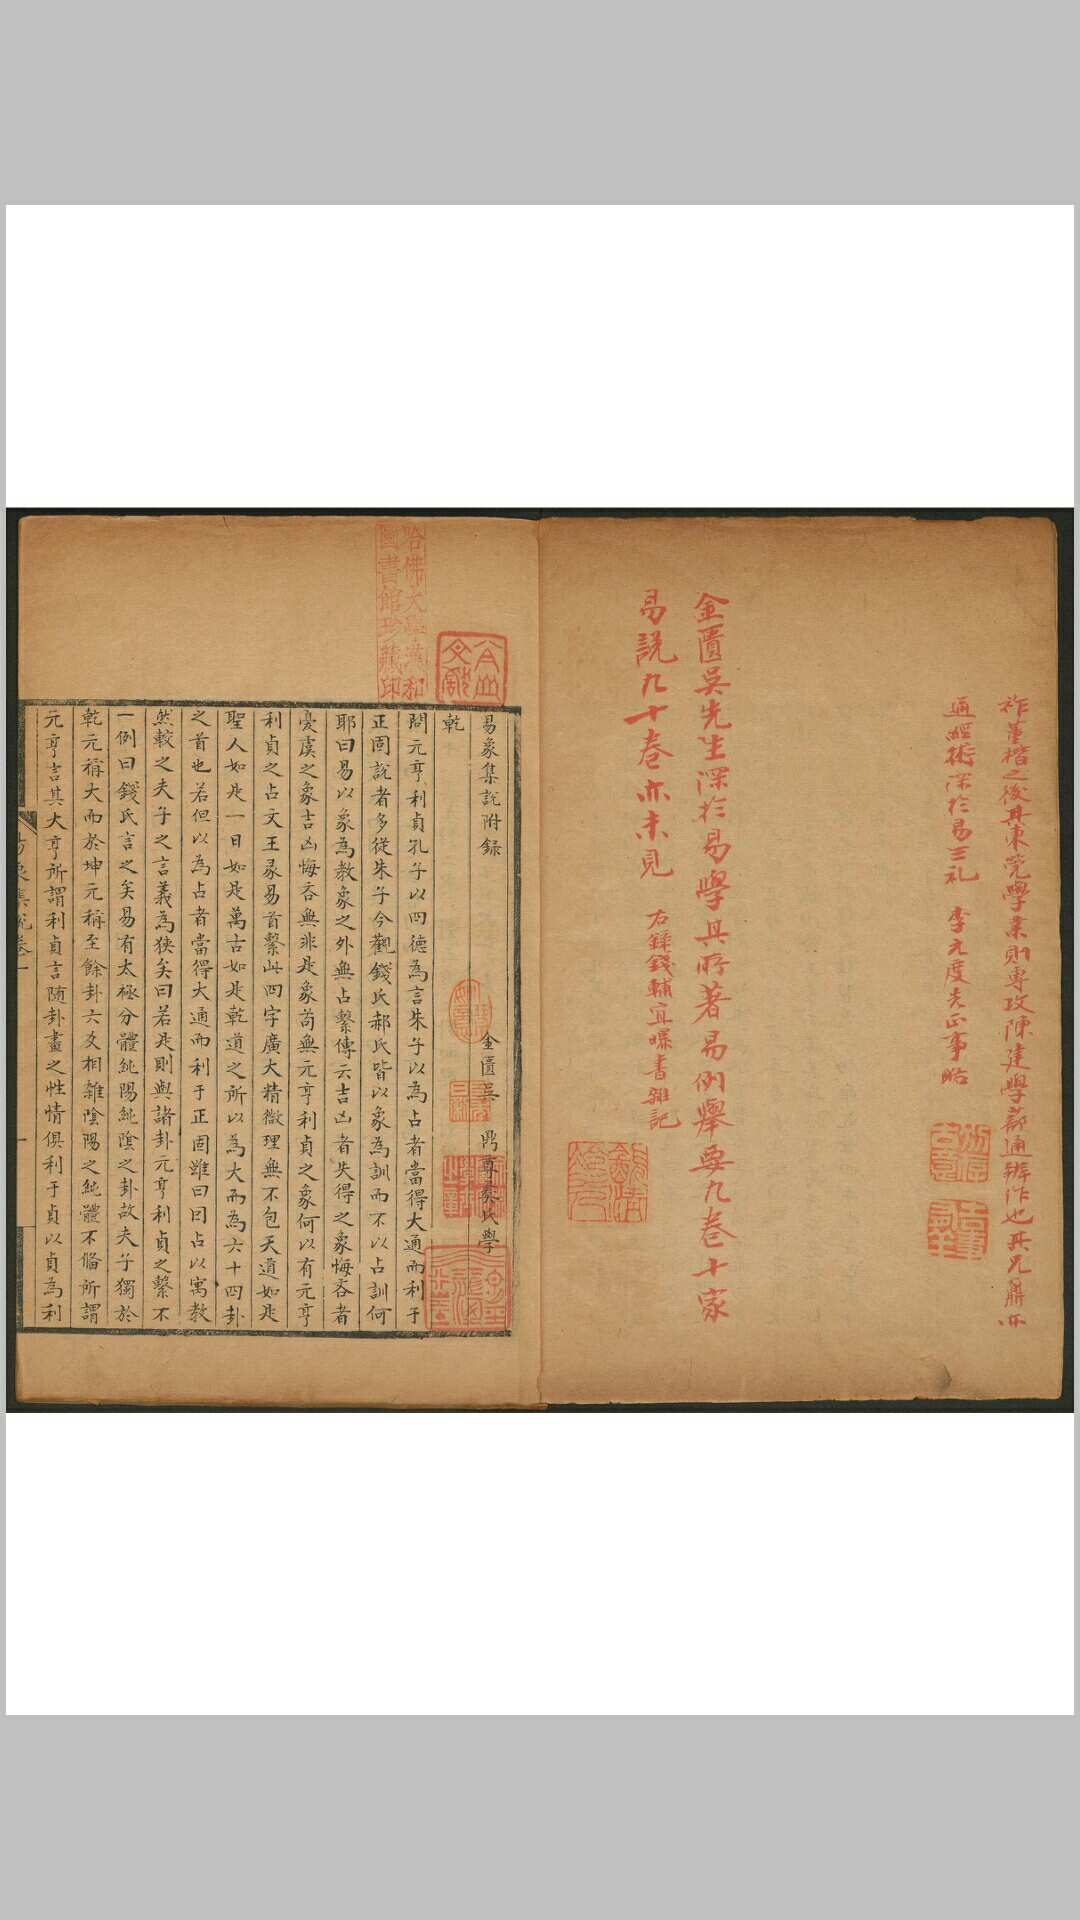 祚董楷之後其東莞學業則專攻陳建學蔀通辨作也其兄鼐亦
通經術深於易三礼　李元度先正事略
金匱吳先生深於易學其所著易例舉要九卷十家
易說九十卷亦未見　右錄錢輔宜曝書雜記
哈佛大學漢和
圖書館珍藏印
易象集說附錄
金匱吳　鼎尊彝氏學
乾
問元亨利貞孔子以四德為言朱子以為占者當得大通而利于
正固說者多從朱子今觀錢氏郝氏皆以象為訓而不以占訓何
耶曰易以象為教象之外無占繫傳云吉凶者失得之象悔吝者
憂虞之象吉凶悔吝無非是象苟無元亨利貞之象何以有元亨
利貞之占文王彖易首繫此四字廣大精微理無不包天道如是
聖人如是一日如是萬古如是乾道之所以為大而為六十四卦
之首也若但以為占者當得大通而利于正固雖曰因占以寓教
然較之夫子之言義為狹矣曰若是則與諸卦元亨利貞之繫不
一例曰錢氏言之矣易有太極分體純陽純陰之卦故夫子獨於
乾元稱大而於坤元稱至餘卦六爻相雜陰陽之純體不備所謂
元亨言其大亨所謂利貞言隨卦畫之性情俱利于貞以貞為利
易象集說卷一
一